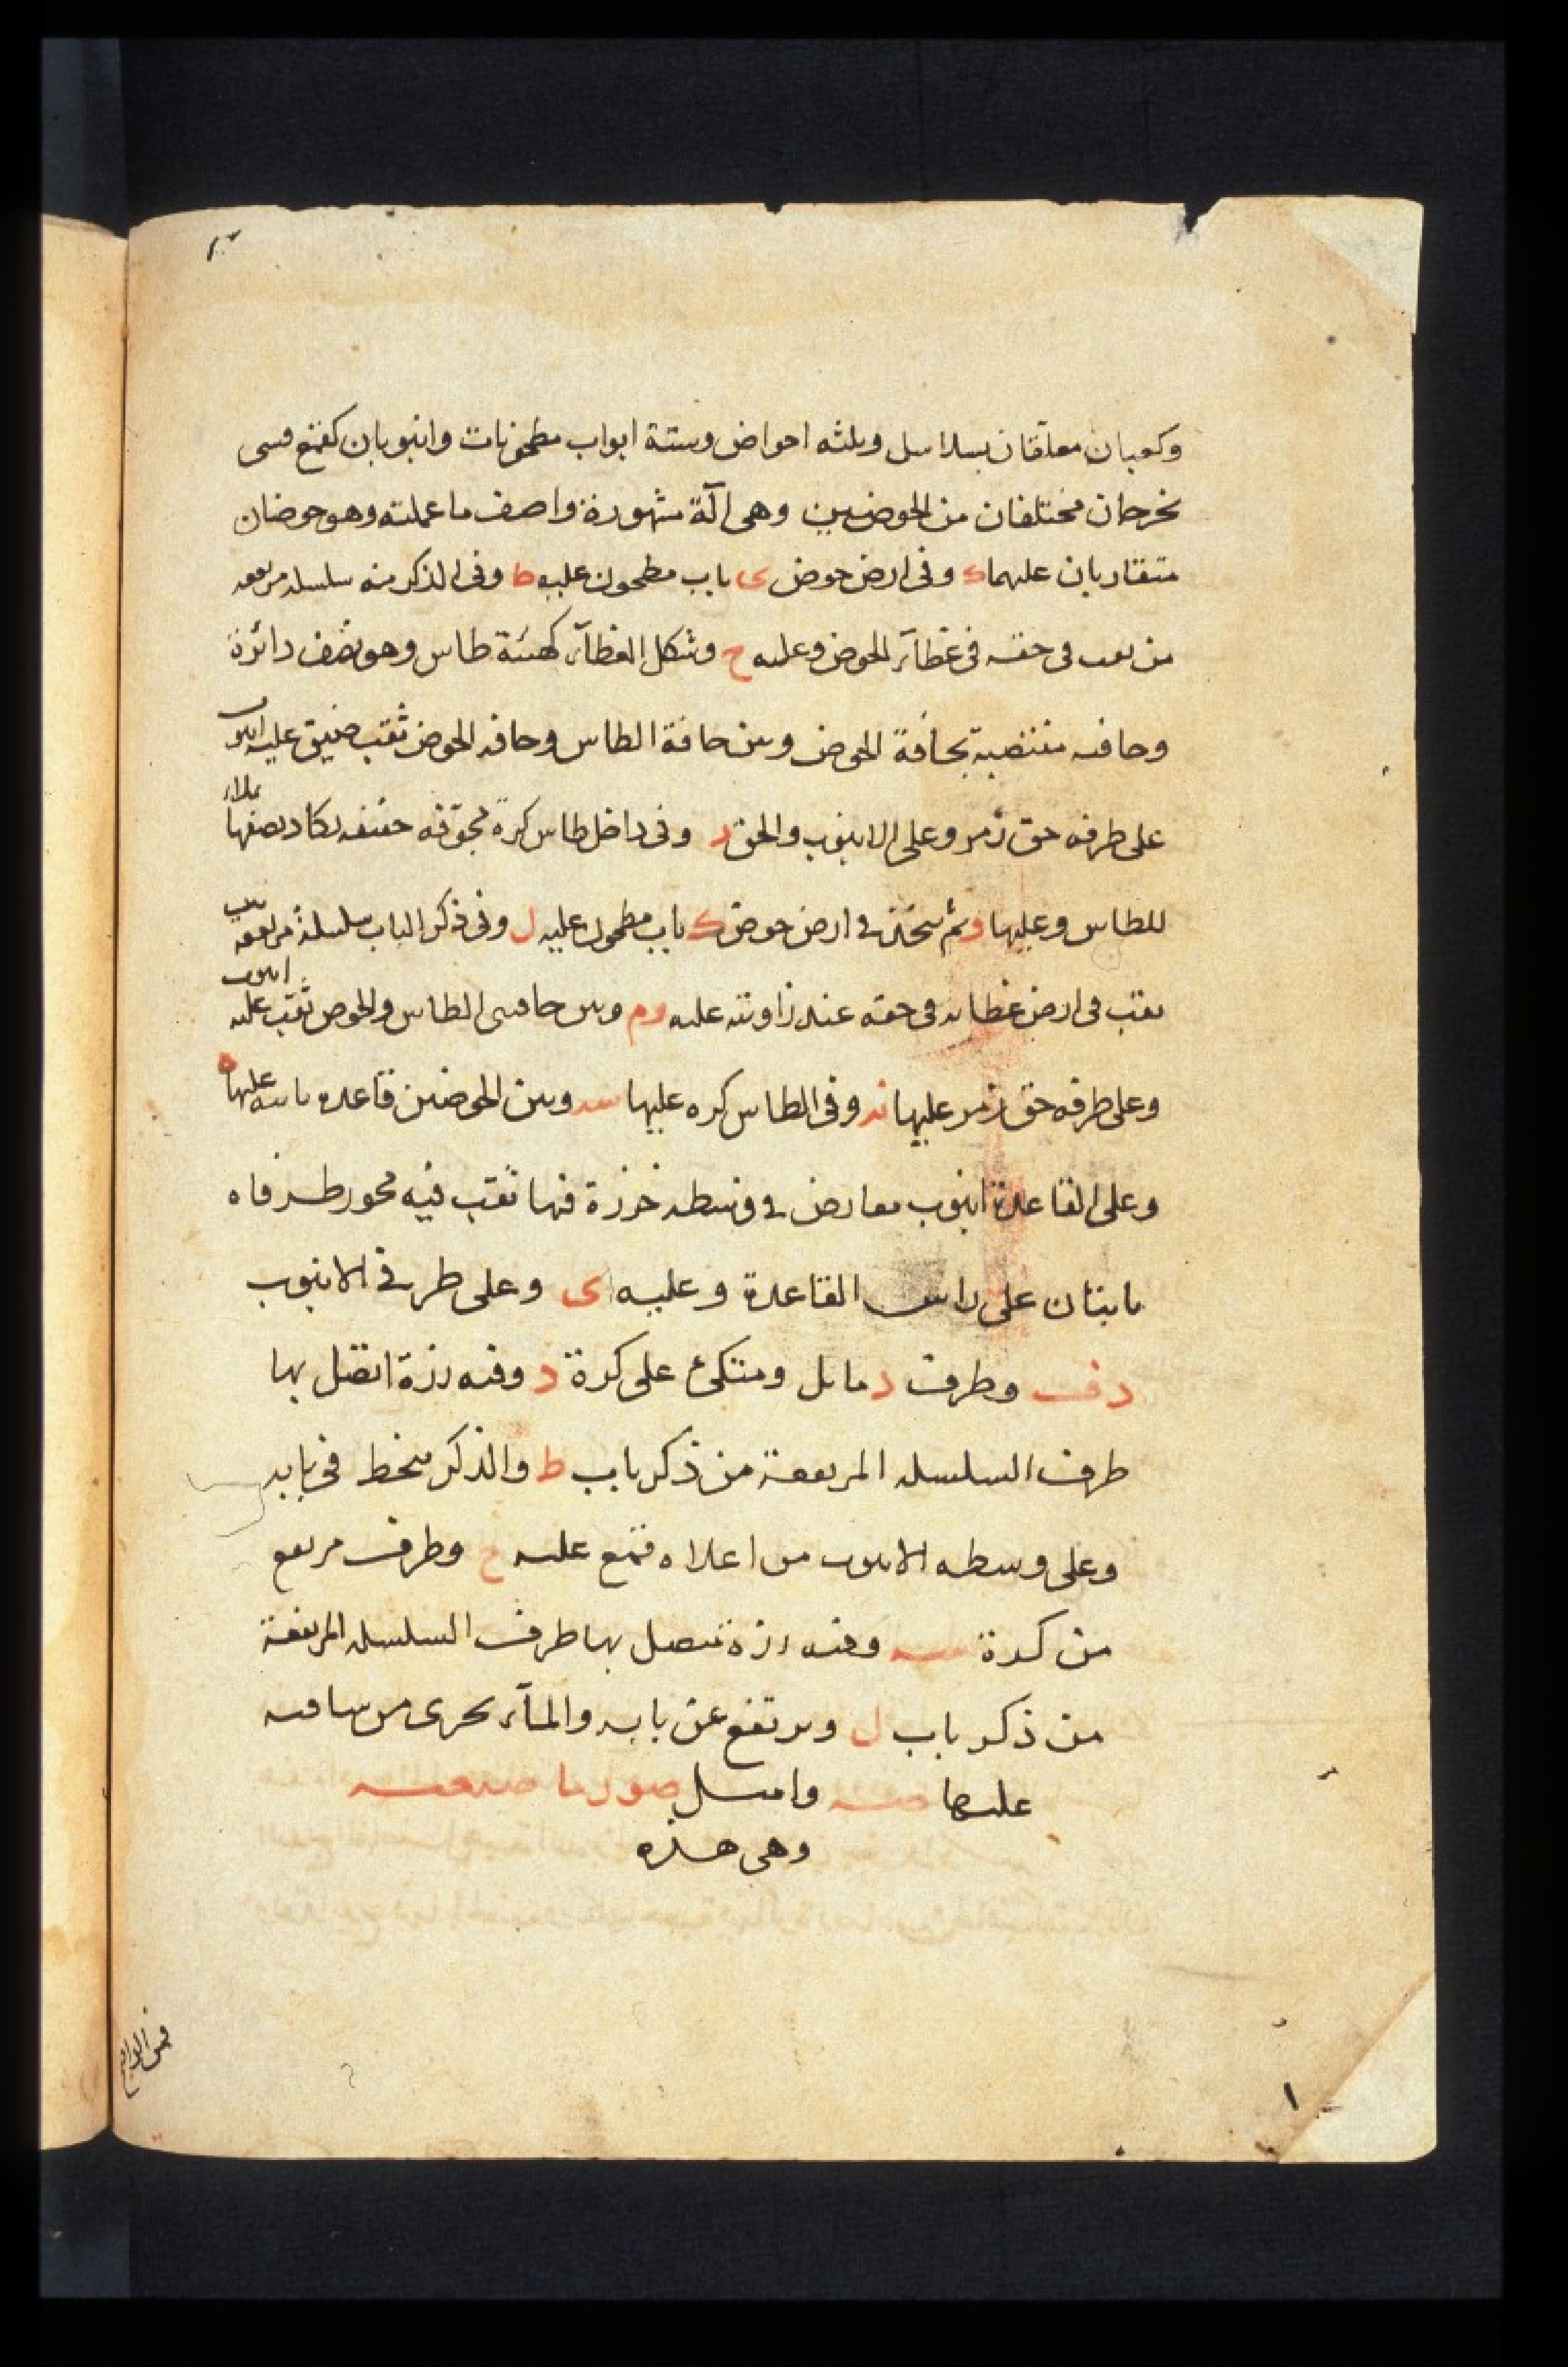 وكعبان معلقان بسلاسل وثلثه احواض وستة ابواب مطحونات وانبوبان كقمع
يخرجان مختلفان من الحوضين وهى آلة مشهورة واصف ما عملته وهو حوضان
متقاربان عليهما ك وفى ارض حوض ى باب مطحون عليه ط وفى الذكر منه سلسله مرتفعه
من ثقب فى حقه فى غطآء الحوض وعليه ح وشكل الغطآء كهيئة طاس وهو نصف دائرة
وحافته منتصبة بحافة الحوض وبين حافة الطاس وحافة الحوض ثقب ضيق عليه انبوب
على طرفه حق زمر وعلى الانبوب والحق د وفى داخل طاس كرة مجوفه خفيفه يكاد نصفها ملاء
للطاس وعليها و ثم يتخذ فى ارض حوض ك باب مطحون عليه ل وفى ذكر الباب سلسلة مرتفعه من
ثقب فى ارض غطائه فى حقه عند زاويته عليه م وبين حافتى الطاس والحوض ثقب عليه انبوب
وعلى طرفه حق زمر عليها ند وفى الطاس كره عليها سه وبين الحوضين قاعده ثابته عليها ه
وعلى القاعدة انبوب معارض فى وسطه خرزة فيها ثقب فيه محور طرفاه
ثابتان على راس القاعدة وعليه ى وعلى طرفى الانبوب
د ف وطرف د مائل ومتكئ على كرة د وفيه رزة اتصل بها
طرف السلسله المرتفعة من ذكر باب ط والذكر منحط فى بابه
وعلى وسطه الانبوب من اعلاه قمع عليه ح وطرف مرتفع
من كرة سه وفيه رزة تتصل بها طرف السلسله المرتفعة
من ذكر باب ل ويرتفع عن بابه والمآء يجرى من ساقيه
عليها وامثل صورة ما صنعته
وهى هذه